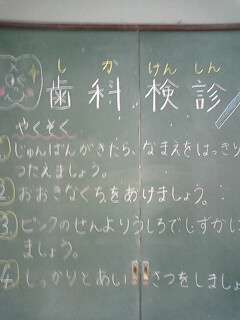 しか けんしん
歯科検診
やくそく
1 じゅんばんがきたら、なまえをはっきり
つたえましょう。
2 おおきなくちをあけましょう。
3 ピンクのせんよりうしろでしずかに
ましょう。
4 しっかりとあいさつをしましょ